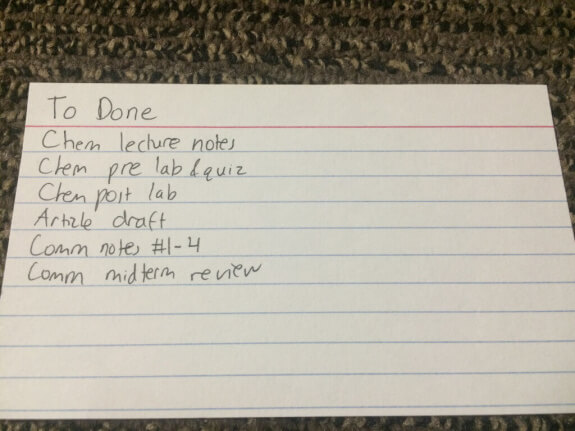 To Done
Chem lecture notes
Chem pre lab & quiz
Chem post lab
Article draft
Comm notes #1-4
Comm midterm review